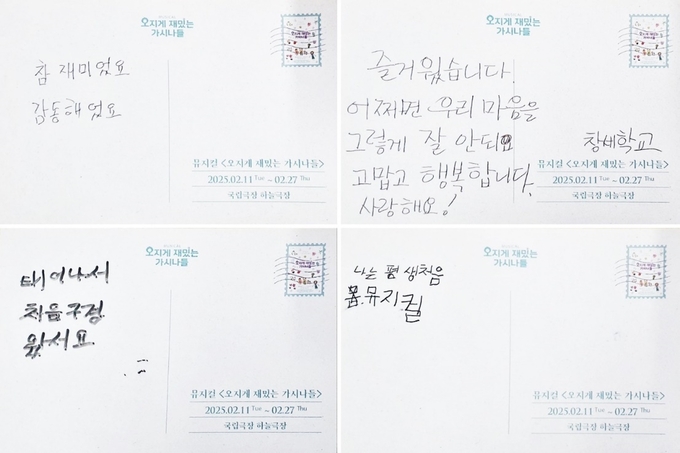 오지게 재밌는
가시나들
참 재미었요
감동해었요
뮤지컬 <오지게 재밌는 가시나들>
2025.02.11 Tue ~ 02.27 Thu
국립극장 하늘극장
오지게 재밌는
가시나들
즐거웠습니다.
어쩌면 우리 마음을
그렇게 잘 안되요
고맙고 행복합니다.
사랑해요!
창세학교
뮤지컬 <오지게 재밌는 가시나들>
2025.02.11 Tue ~ 02.27 Thu
국립극장 하늘극장
오지게 재밌는
가시나들
태어나서
처음구경
왔서요
뮤지컬 <오지게 재밌는 가시나들>
2025.02.11 Tue ~ 02.27 Thu
국립극장 하늘극장
오지게 재밌는
가시나들
나는 평생처음
봄.뮤지컬
뮤지컬 <오지게 재밌는 가시나들>
2025.02.11 Tue ~ 02.27 Thu
국립극장 하늘극장